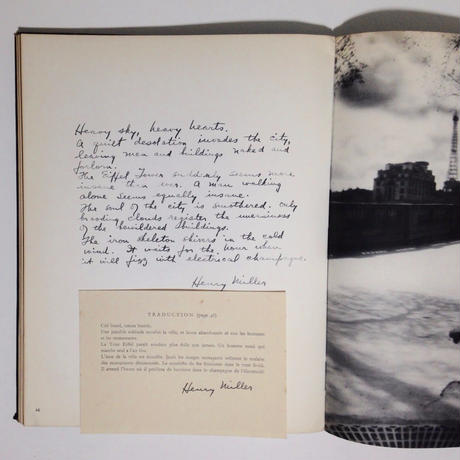 Heavy sky, heavy hearts.
A quiet desolation invades the city,
leaving men and buildings naked and
forlorn.
The Eiffel Tower suddenly seems more
insane than ever. A man walking
alone seems equally insane.
The soul of the city is smothered. Only
brooding clouds register the uneasiness
of the bewildered buildings.
The iron skeleton shivers in the cold
wind. It waits for the hour when
it will fizz with electrical champagne.
Henry Miller
TRADUCTION (page 46)
Ciel lourd, cœurs lourds.
Une paisible solitude envahit la ville, et laisse abandonnés et nus les hommes
et les monuments.
La Tour Eiffel paraît soudain plus folle que jamais. Un homme seul qui
marche seul a l'air fou.
L'âme de la ville est étouffée. Seuls les nuages menaçants reflètent le malaise
des monuments déconcertés. Le squelette de fer frissonne dans le vent froid.
Il attend l'heure où il pétillera de lumière dans le champagne de l'électricité.
Henry Miller